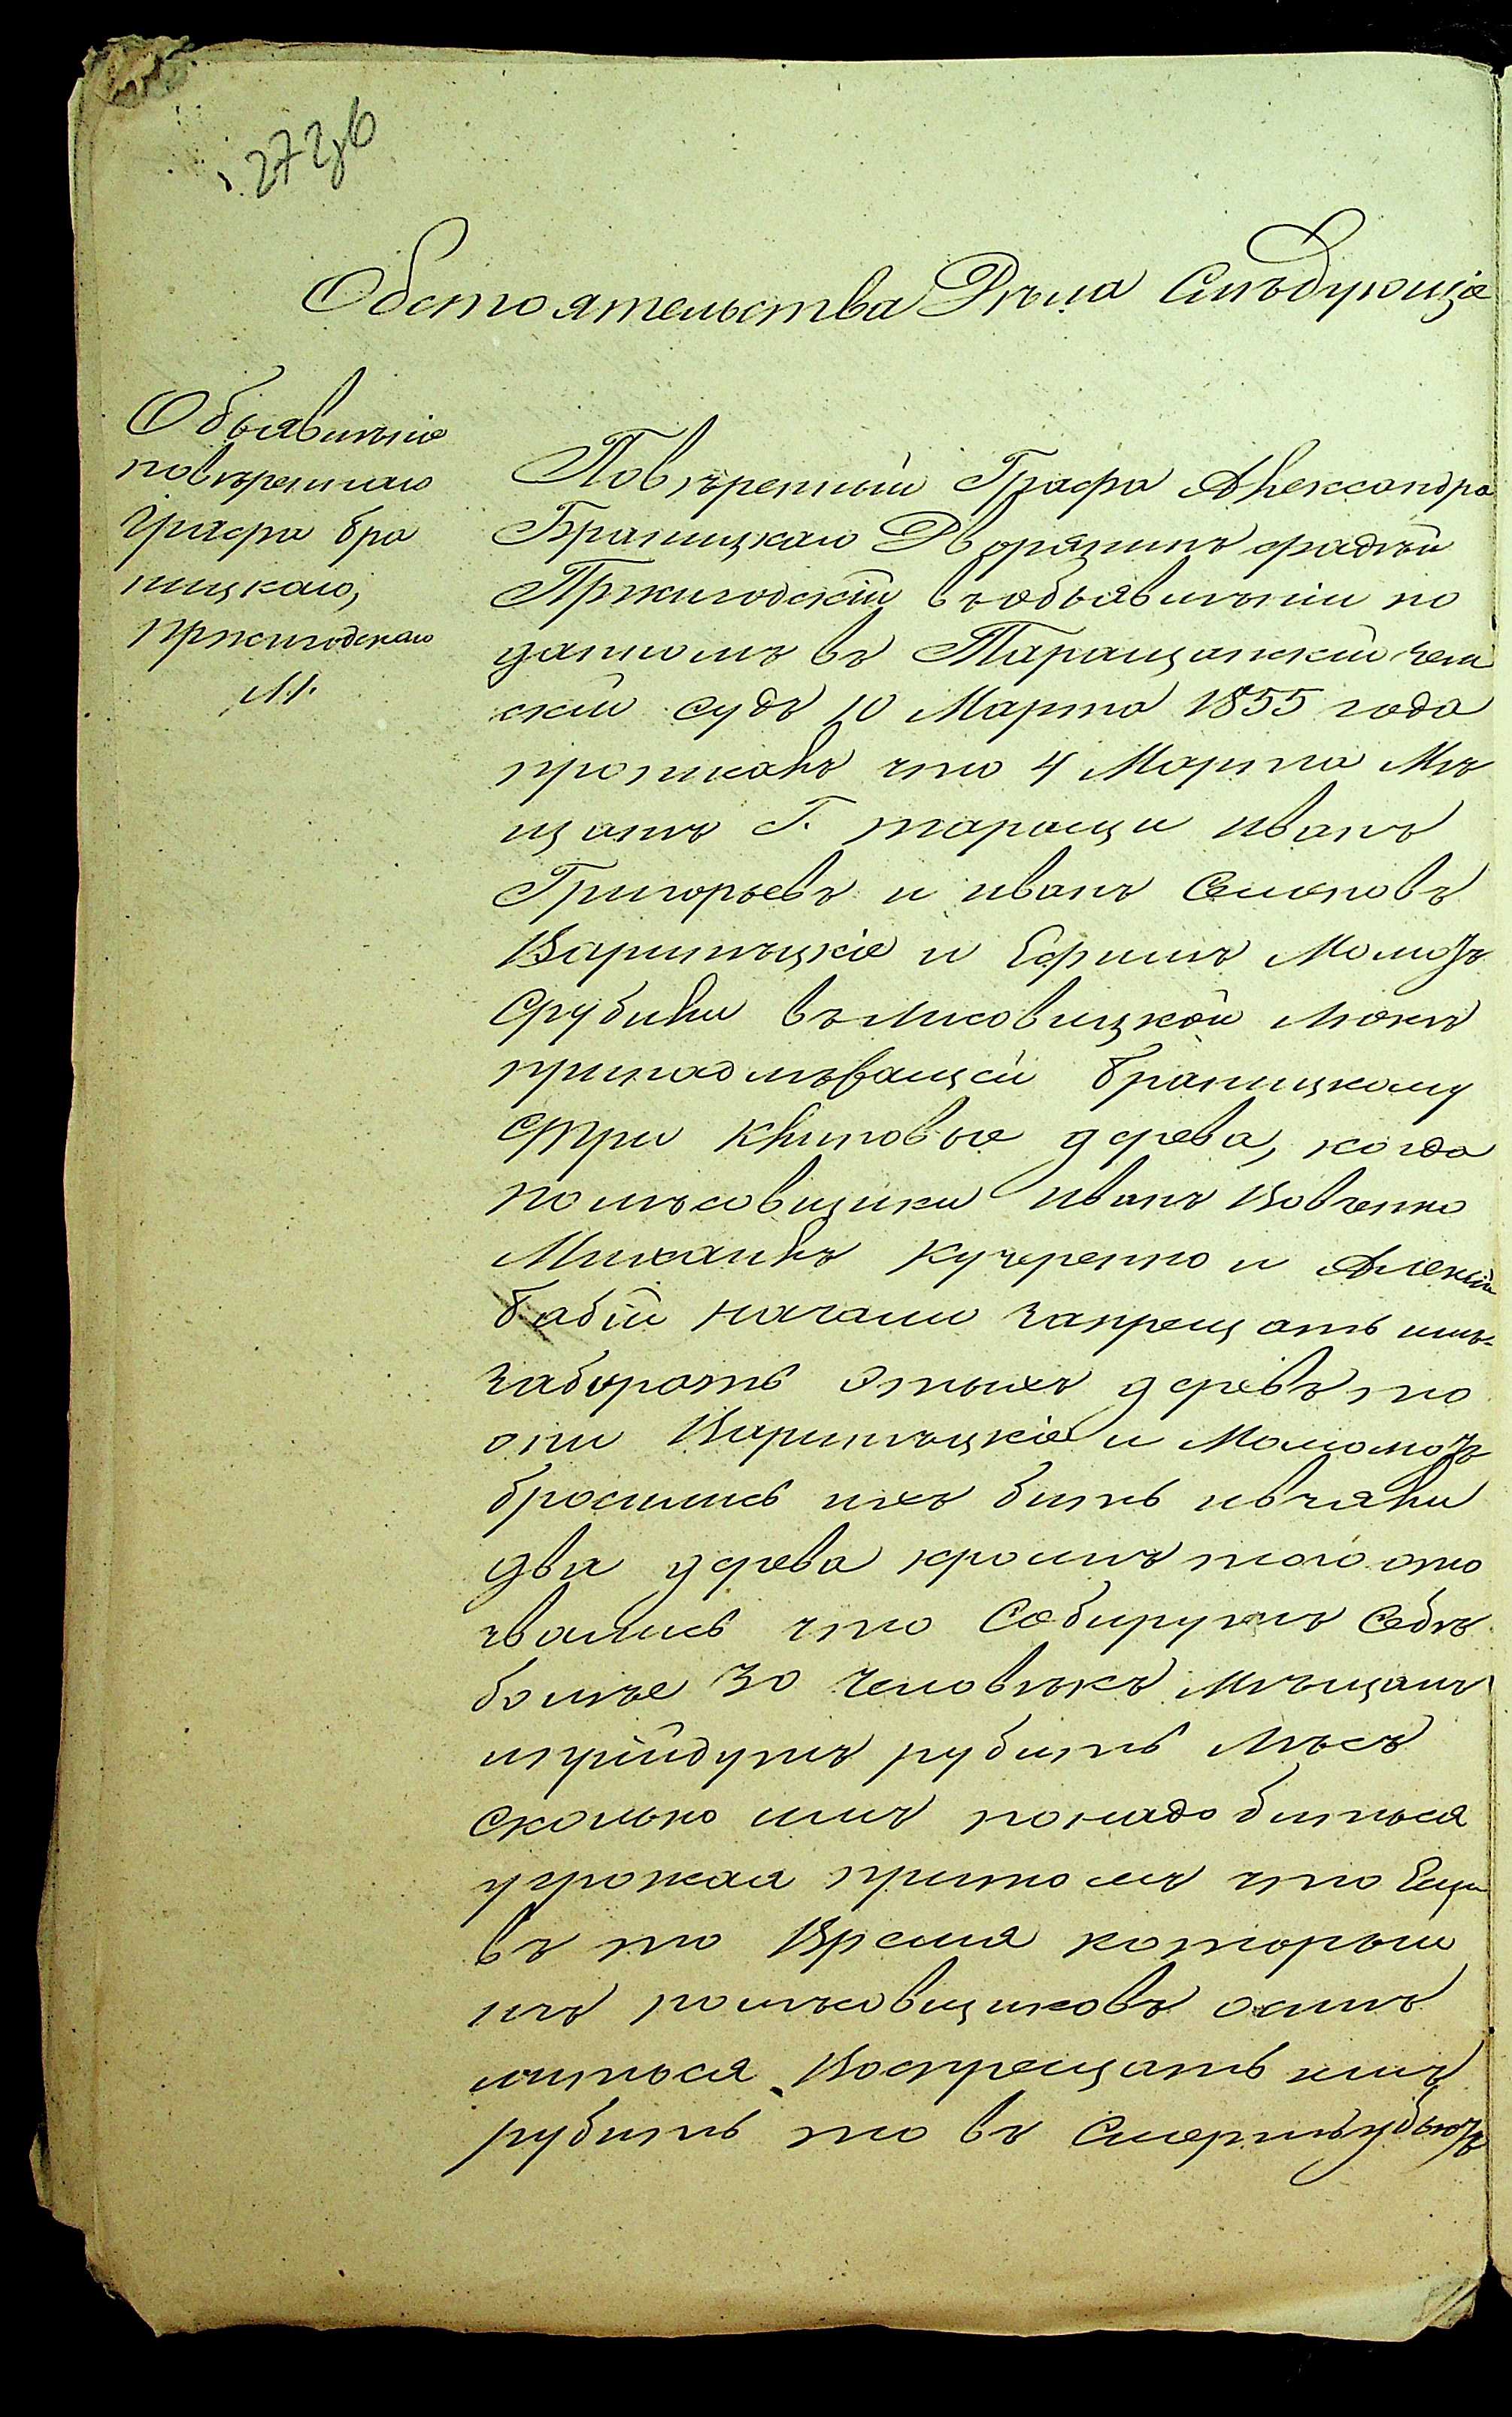 272 об
Обстоятельства Дѣла Слѣдующіе
Обьявленіе
повѣреннаго
Графа бра
ницкаго,
пржигодскаго
Повѣренный Графа Александра
Браницкаго Дворянинъ фадѣй
Пржигодскій въ обьявленіи по
данномъ въ Таращанскій зем
скій судъ 10 Марта 1855 года
прописалъ что 4 Марта Мѣ
щане Г. таращи иванъ
Григорьевъ и иванъ Семеновъ
Варитецкіе и Ефимъ Момотъ
срубили въ Лисовицкой
принадлежащей браницкому
три кленовые дерева, когда
полѣсовщики иванъ Вовченко
Михаилъ Кучеренко и Алексѣй
бабій начали запрещать имъ
забирать Этихъ деревъ то
они Варитецкіе и
бросились ихъ бить и взяли
два дерева кромѣ того ото
звались что Соберутъ Себѣ
более 30 Человѣкъ Мѣщанъ
и прійдутъ рубить Лѣсъ
сколько имъ понадобиться
угрожая притомъ что Если
въ то Время который
изъ полѣсовщиковъ осмѣ
литься Воспрещать имъ
рубить то въ Смерть убьютъ